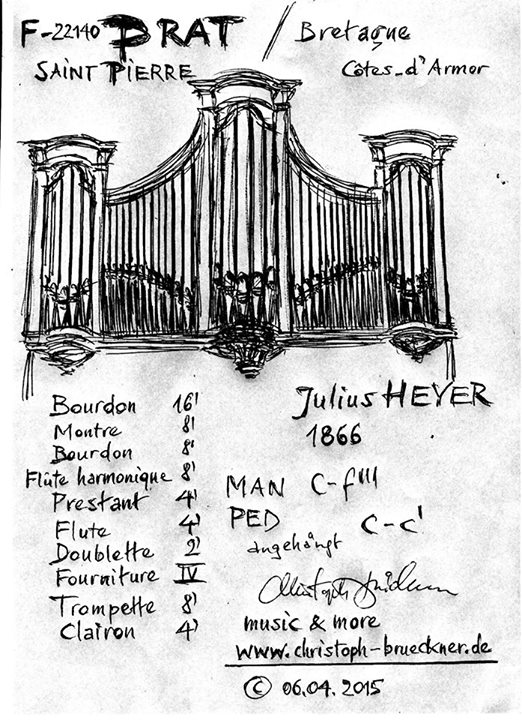 F-22140 PRAT / Bretagne
SAINT PIERRE Côtes-d'Armor
Bourdon 16'
Montre 8'
Bourdon 8'
Flûte harmonique 8'
Prestant 4'
Flute 4'
Doublette 2'
Fourniture IV
Trompette 8'
Clairon 4'
Julius HEYER
1866
MAN C-f'''
PED C-c'
angehängt
music & more
www.christoph-brueckner.de
© 06.04.2015